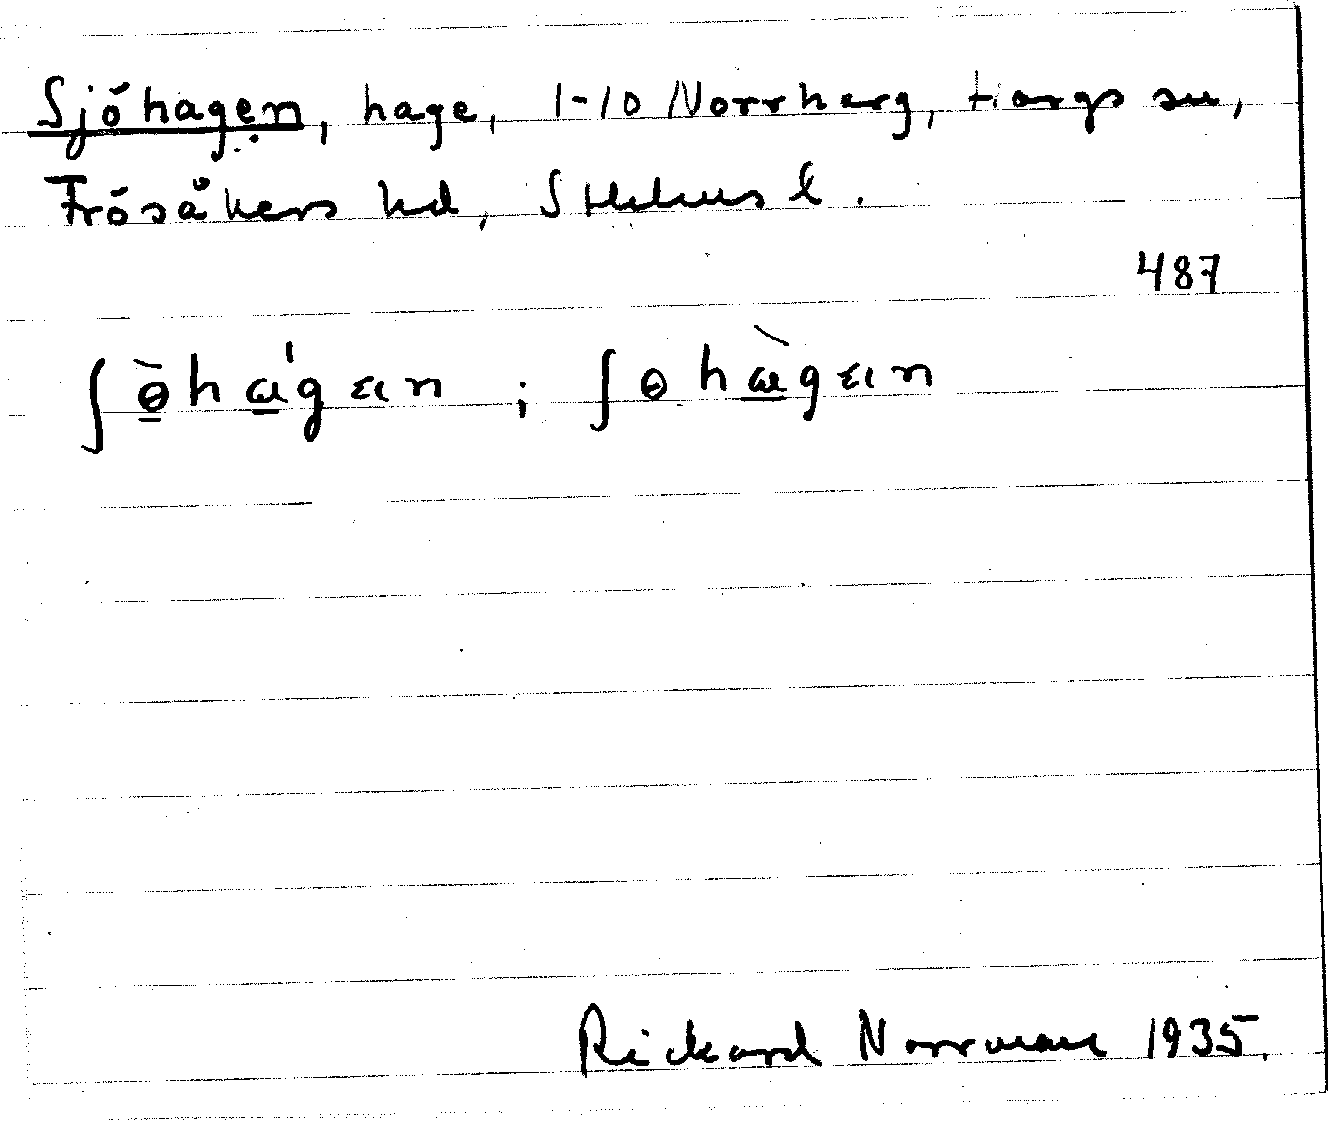 Sjöhagen, hage, 1-10 Norrharg, Hargs sn,
Frösåkers hd, Sthlms l.
487
ʃɵ̀hɑ́gɛn ; ʃɵhɑ̀gɛn
Rickard Norrman 1935.